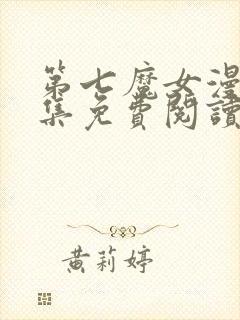 第七魔女漫
集免費閱讀
黃莉婷